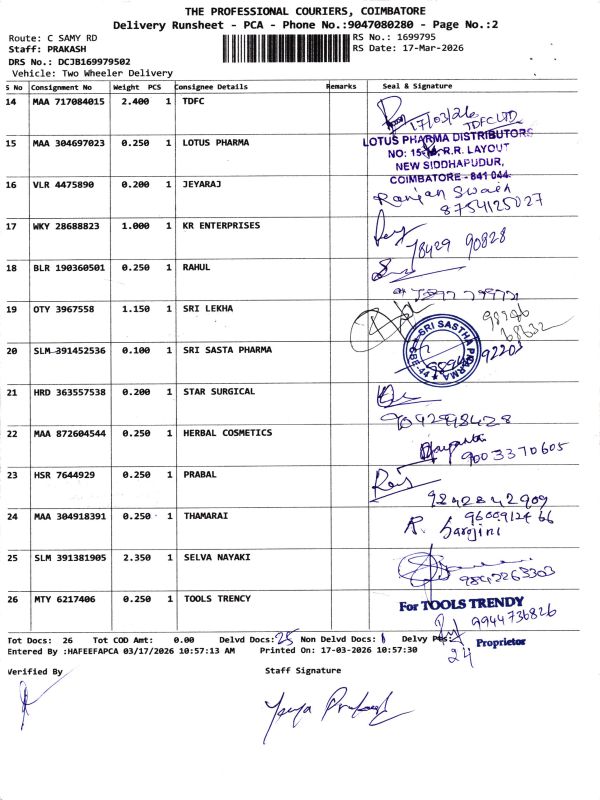 THE PROFESSIONAL COURIERS, COIMBATORE
Delivery Runsheet - PCA - Phone No.:9047080280 - Page No.:2
Route: C SAMY RD
RS No.: 1699795
Staff: PRAKASH
RS Date: 17-Mar-2026
DRS No.: DCJB169979502
Vehicle: Two Wheeler Delivery
S No Consignment No Weight PCS Consignee Details Remarks Seal & Signature
14 MAA 717084015 2.400 1 TDFC
17/03/26
TDFC LTD
15 MAA 304697023 0.250 1 LOTUS PHARMA
LOTUS PHARMA DISTRIBUTORS
R.R. LAYOUT
NEW SIDDHAPUDUR,
COIMBATORE - 641 044.
16 VLR 4475890 0.200 1 JEYARAJ
Ranjan Swain
8754125027
17 WKY 28688823 1.000 1 KR ENTERPRISES
78429 90828
18 BLR 190360501 0.250 1 RAHUL
19 OTY 3967558 1.150 1 SRI LEKHA
20 SLM 391452536 0.100 1 SRI SASTA PHARMA
SRI SASTHA PHARMA
92203
21 HRD 363557538 0.200 1 STAR SURGICAL
9042998428
22 MAA 872604544 0.250 1 HERBAL COSMETICS
9003370605
23 HSR 7644929 0.250 1 PRABAL
Raj
9842842909
24 MAA 304918391 0.250 1 THAMARAI
9600912466
R. Sarojini
25 SLM 391381905 2.350 1 SELVA NAYAKI
9842263303
26 MTY 6217406 0.250 1 TOOLS TRENCY
For TOOLS TRENDY
9944736826
Proprietor
Tot Docs: 26 Tot COD Amt: 0.00 Delvd Docs: 25 Non Delvd Docs: 1 Delvy Pts:
24
Entered By :HAFEEFAPCA 03/17/2026 10:57:13 AM Printed On: 17-03-2026 10:57:30
Verified By
Staff Signature
Prakash